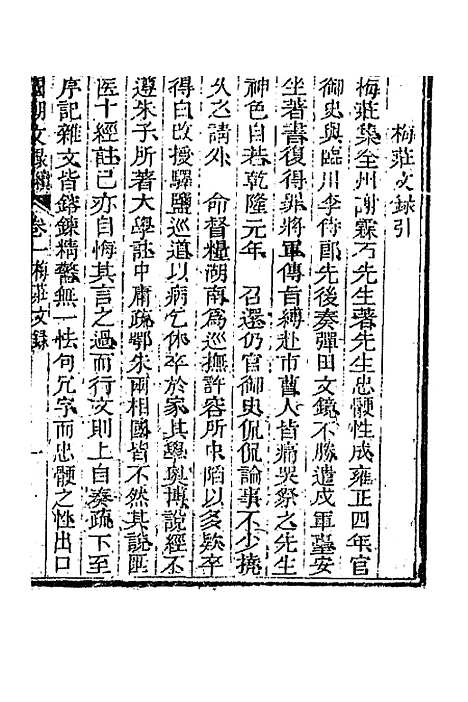 梅莊文録引
梅莊集全州謝霖石先生著先生忠骾性成雍正四年官
御史與臨川李侍郎先後奏彈田文鏡不勝遣戍軍臺安
坐著書復得罪將軍傳首縛赴市曹人皆痛哭祭之先生
神色自若乾隆元年 召還仍官御史侃侃論事不少撓
久之請外 命督糧湖南爲巡撫許容所中陷以多欵卒
得白改授驛鹽巡道以病乞休卒於家其學奥博說經不
遵朱子所著大學註中庸疏鄂朱兩相國皆不然其說匪
匠十經註已亦自悔其言之過而行文則上自奏疏下至
序記雜文皆鎔鍊精警無一怯句冗字而忠骾之性出口
國朝文録續 卷一梅莊文録 一